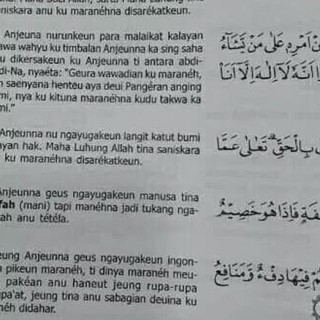 saniskara anu ku maranéhna disarékatkeun.
Anjeuna nurunkeun para malaikat kalayan
awa wahyu ku timbalan Anjeunna ka sing saha
u dikersakeun ku Anjeunna ti antara abdi-
di-Na, nyaéta: "Geura wawadian ku maranéh,
n saenyana henteu aya deui Pangéran anging
mi, nya ku kituna maranéhna kudu takwa ka
mi."
Anjeunna nu ngayugakeun langit katut bumi
ayan hak. Maha Luhung Allah tina saniskara
ku maranéhna disarékatkeun.
Anjeunna geus ngayugakeun manusa tina
fah (mani) tapi manéhna jadi tukang nga-
ah anu tétéla.
eung Anjeunna geus ngayugakeun ingon-
n pikeun maranéh, ti dinya maranéh meu-
pakéan anu haneut jeung rupa-rupa
pa'at, jeung tina anu sabagian deuina ku
néh didahar.
مِنْ اَمْرِهٖ عَلٰى مَنْ يَّشَآءُ
اَنَّهٗ لَآ اِلٰهَ اِلَّآ اَنَا۠
بِالْحَقِّۗ تَعٰلٰى عَمَّا
فَاِذَا هُوَ خَصِيْمٌ
فِيْهَا دِفْءٌ وَّمَنَافِعُ